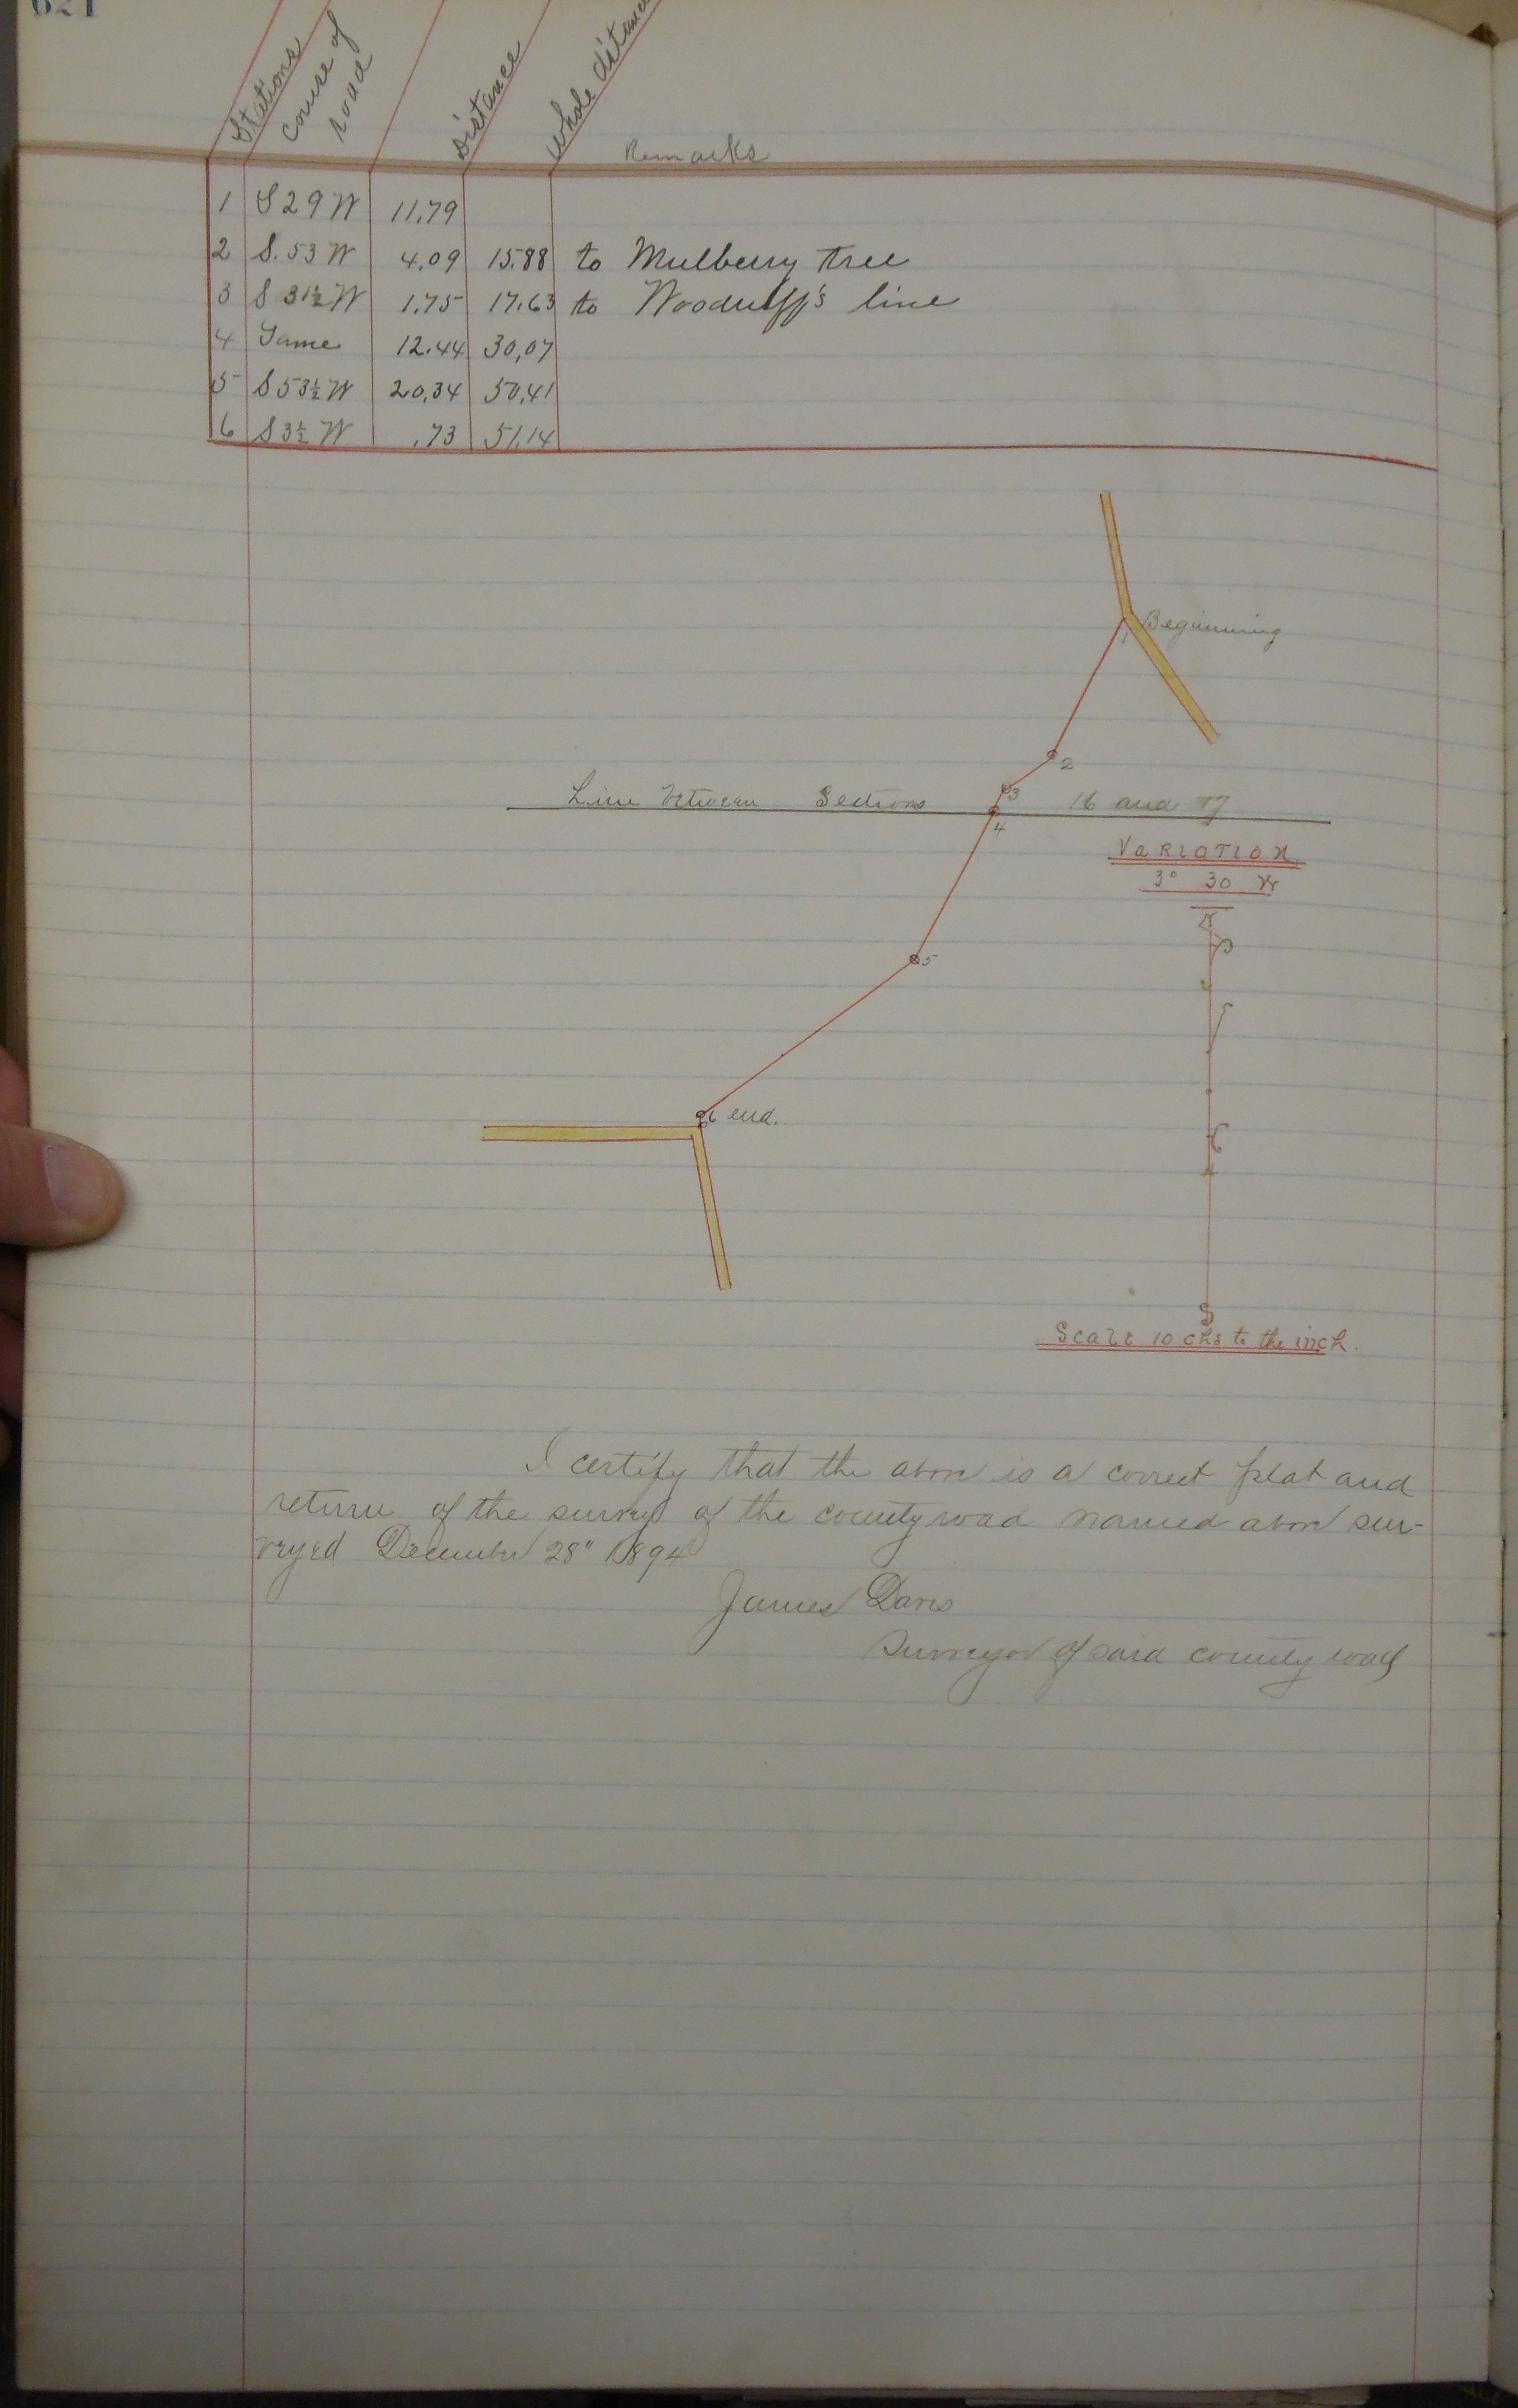 621
Stations
Course of road
Distance
Whole distance
Remarks
1 S 29 W 11.79
2 S. 53 W 4.09 15.88 to Mulberry tree
3 S 31½ W 1.75 17.63 to Woodruff's line
4 Same 12.44 30,07
5 S 53½ W 20,34 50,41
6 S 3½ W ,73 51,14
Beginning
1
2
3
Line between Sections 16 and 17
4
Variation
3° 30 W
N
5
6 end.
S
Scale 10 chs to the inch.
I certify that the above is a correct plat and
return of the survey of the county road named above sur-
veyed December 28" 1894
James Davis
Surveyor of said county road